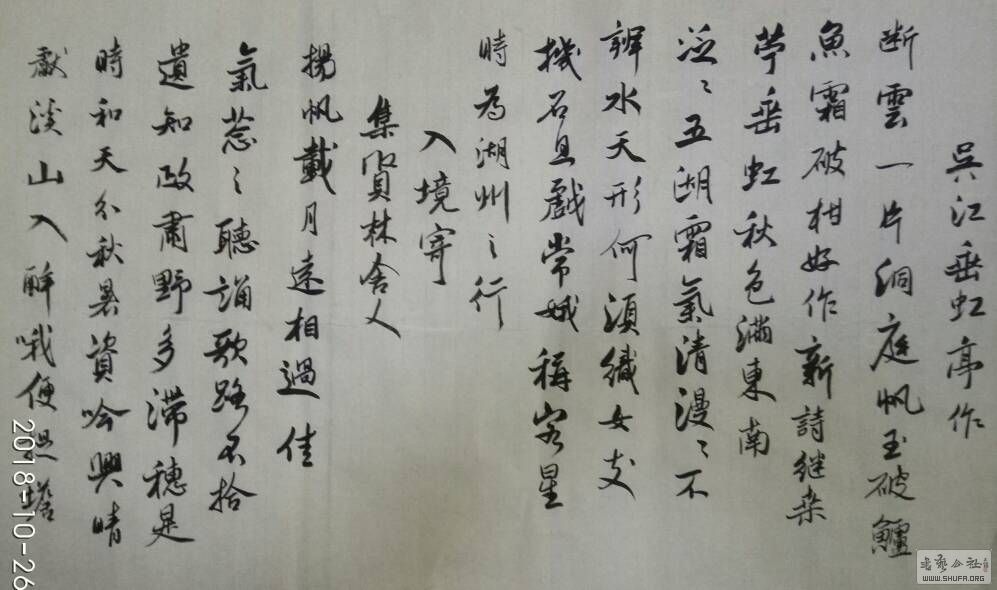 吳江垂虹亭作
斷雲一片洞庭帆玉破鱸
魚霜破柑好作新詩継桒
苧垂虹秋色滿東南
泛〻五湖霜氣清漫〻不
辨水天形何須織女支
機石且戲常娥稱客星
時為湖州之行
入境寄
集賢林舍人
揚帆載月遠相過佳
氣葱〻聽誦歌路不拾
遺知政肅野多滯穗是
時和天分秋暑資吟興晴
獻溪山入醉哦便是
2018-10-26
WWW.SHUFA.ORG